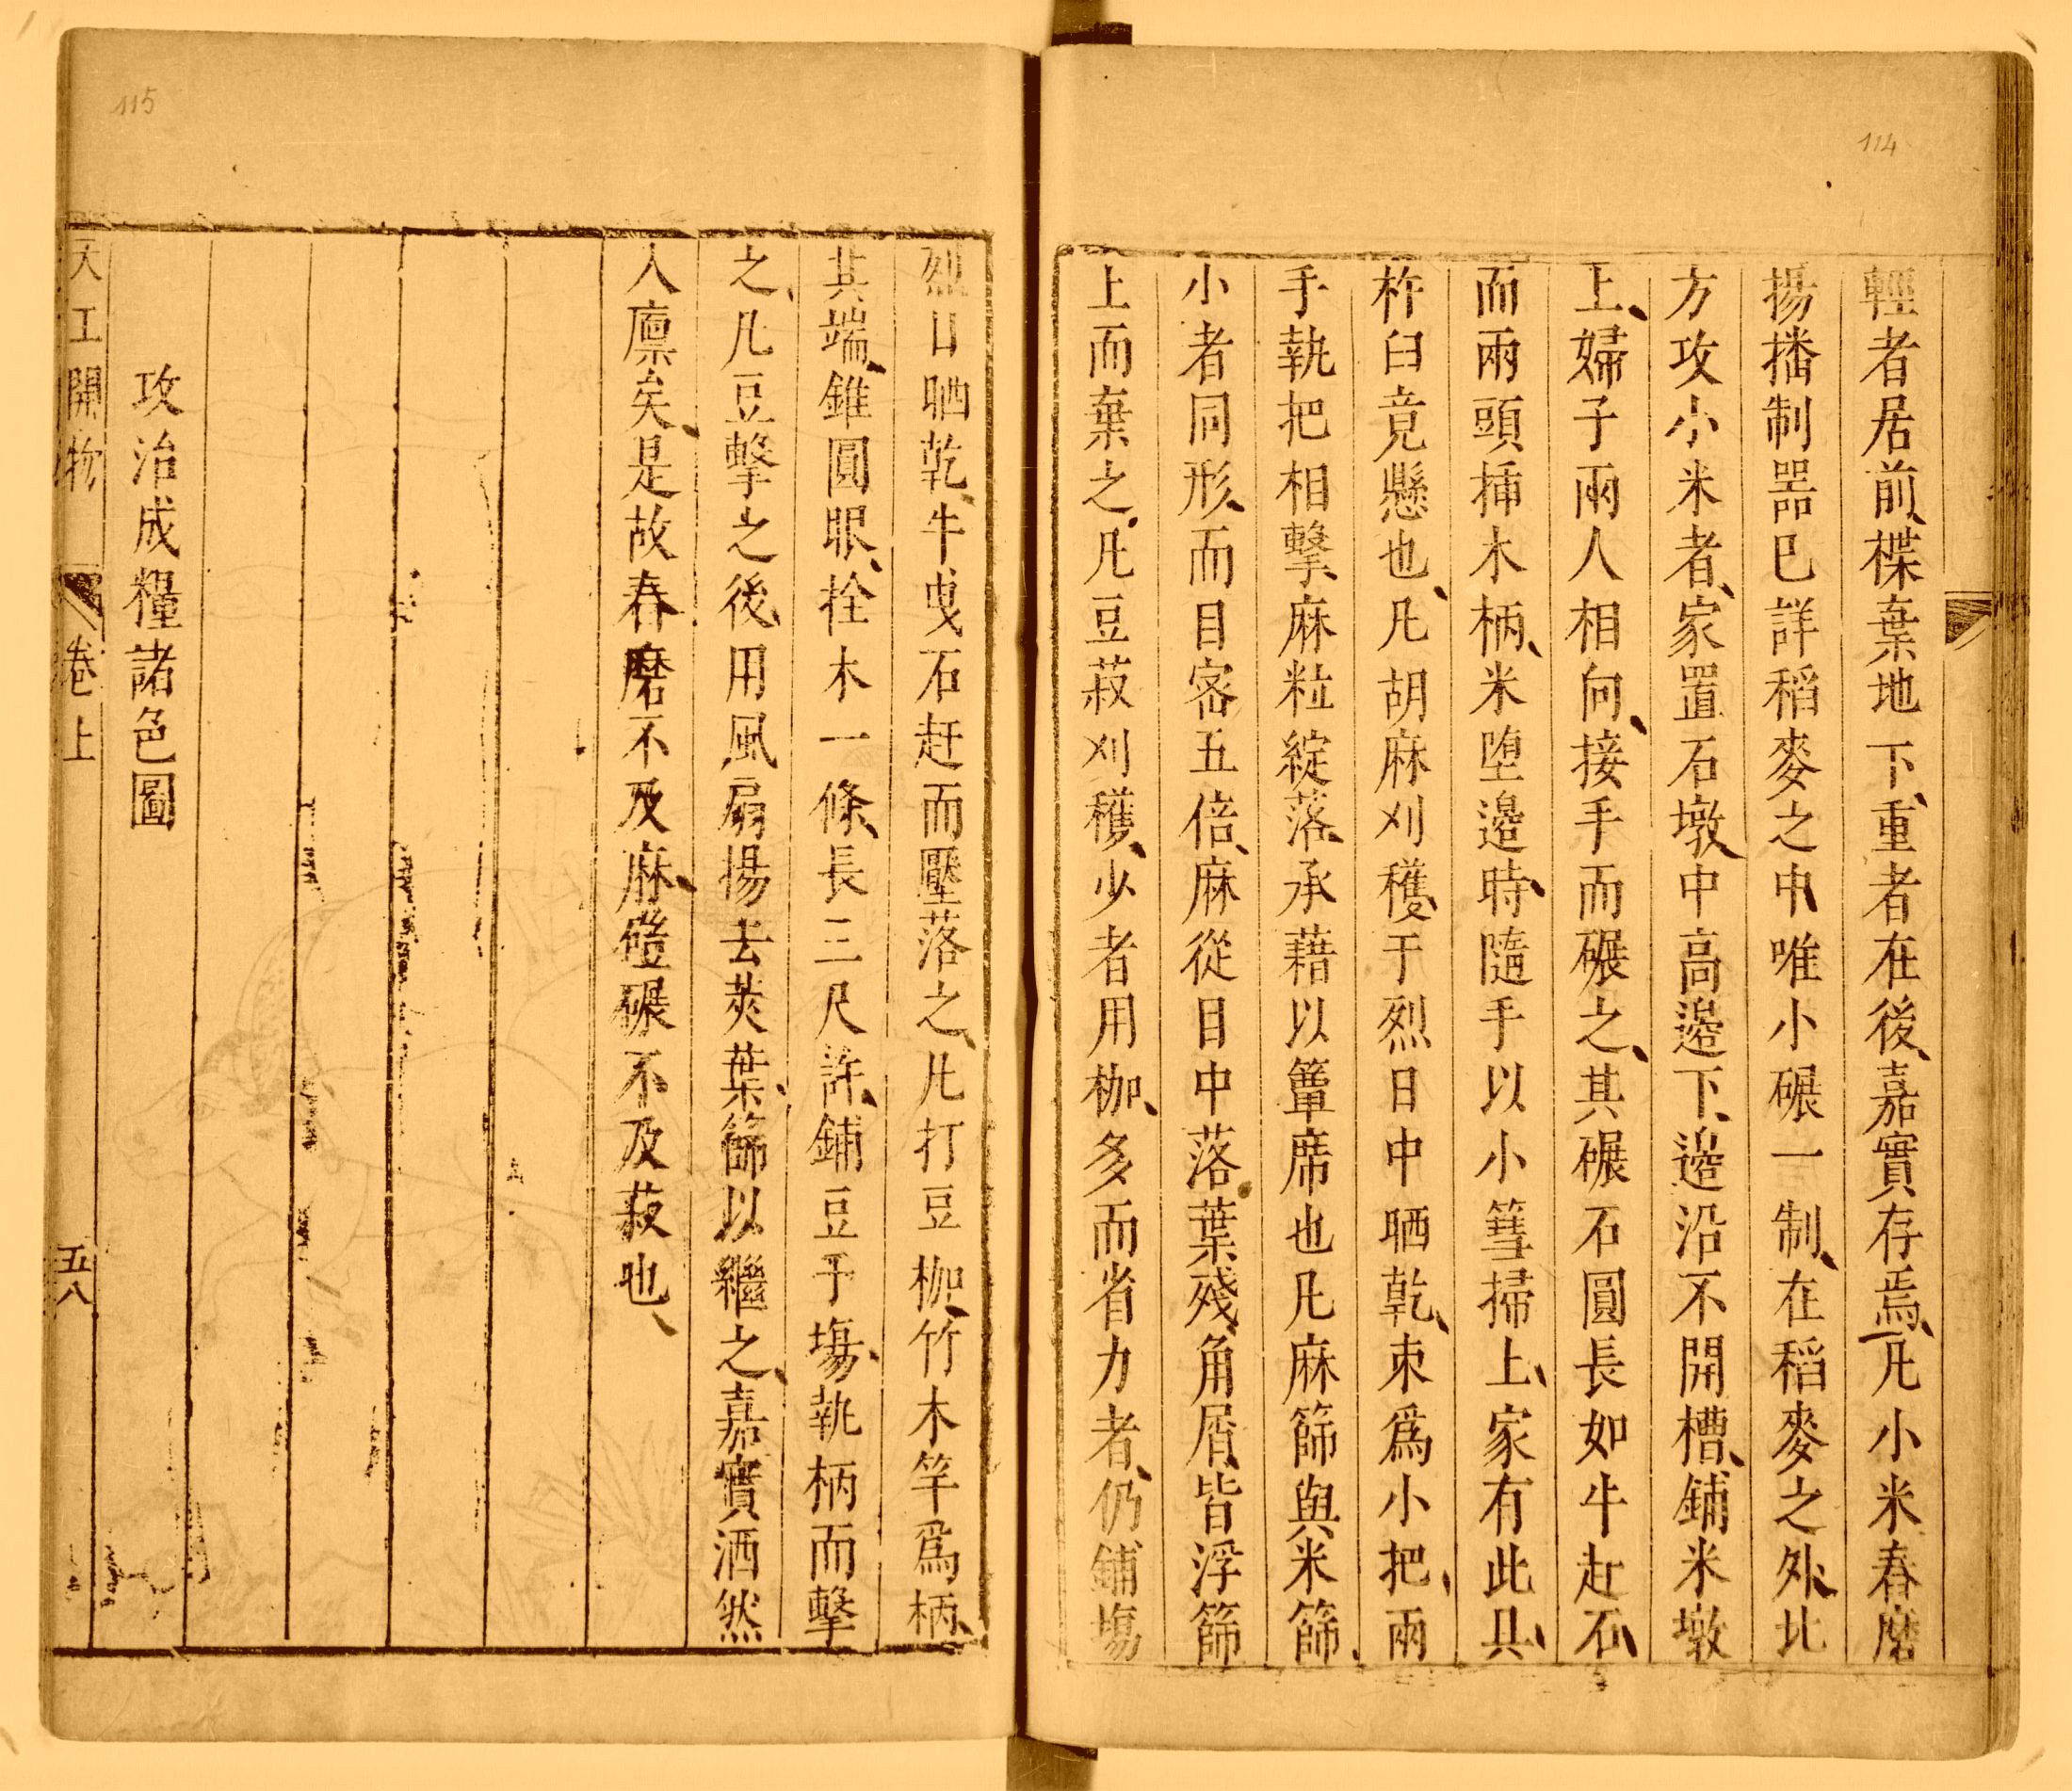 114
輕者居前楪棄地下重者在後嘉實存焉凡小米舂磨
揚播制器已詳稻麥之中唯小碾一制在稻麥之外北
方攻小米者家置石墩中高邊下邊沿不開槽鋪米墩
上婦子兩人相向接手而碾之其碾石圓長如牛赶石
而兩頭揷木柄米墮邊時隨手以小篲掃上家有此具
杵臼竟懸也凡胡麻刈穫于烈日中晒乾束爲小把兩
手執把相擊麻粒綻落承藉以簟席也凡麻篩與米篩
小者同形而目宻五倍麻從目中落葉殘角屑皆浮篩
上而棄之凡豆菽刈穫少者用枷多而省力者仍鋪塲
115
烈日晒乾牛曳石赶而壓落之凡打豆枷竹木竿爲柄
其端錐圓眼拴木一條長三尺許鋪豆于塲執柄而擊
之凡豆擊之後用風扇揚去莢葉篩以繼之嘉實洒然
入廪矣是故舂磨不及麻磑碾不及菽也
攻治成糧諸色圖
天工開物 卷上 五八